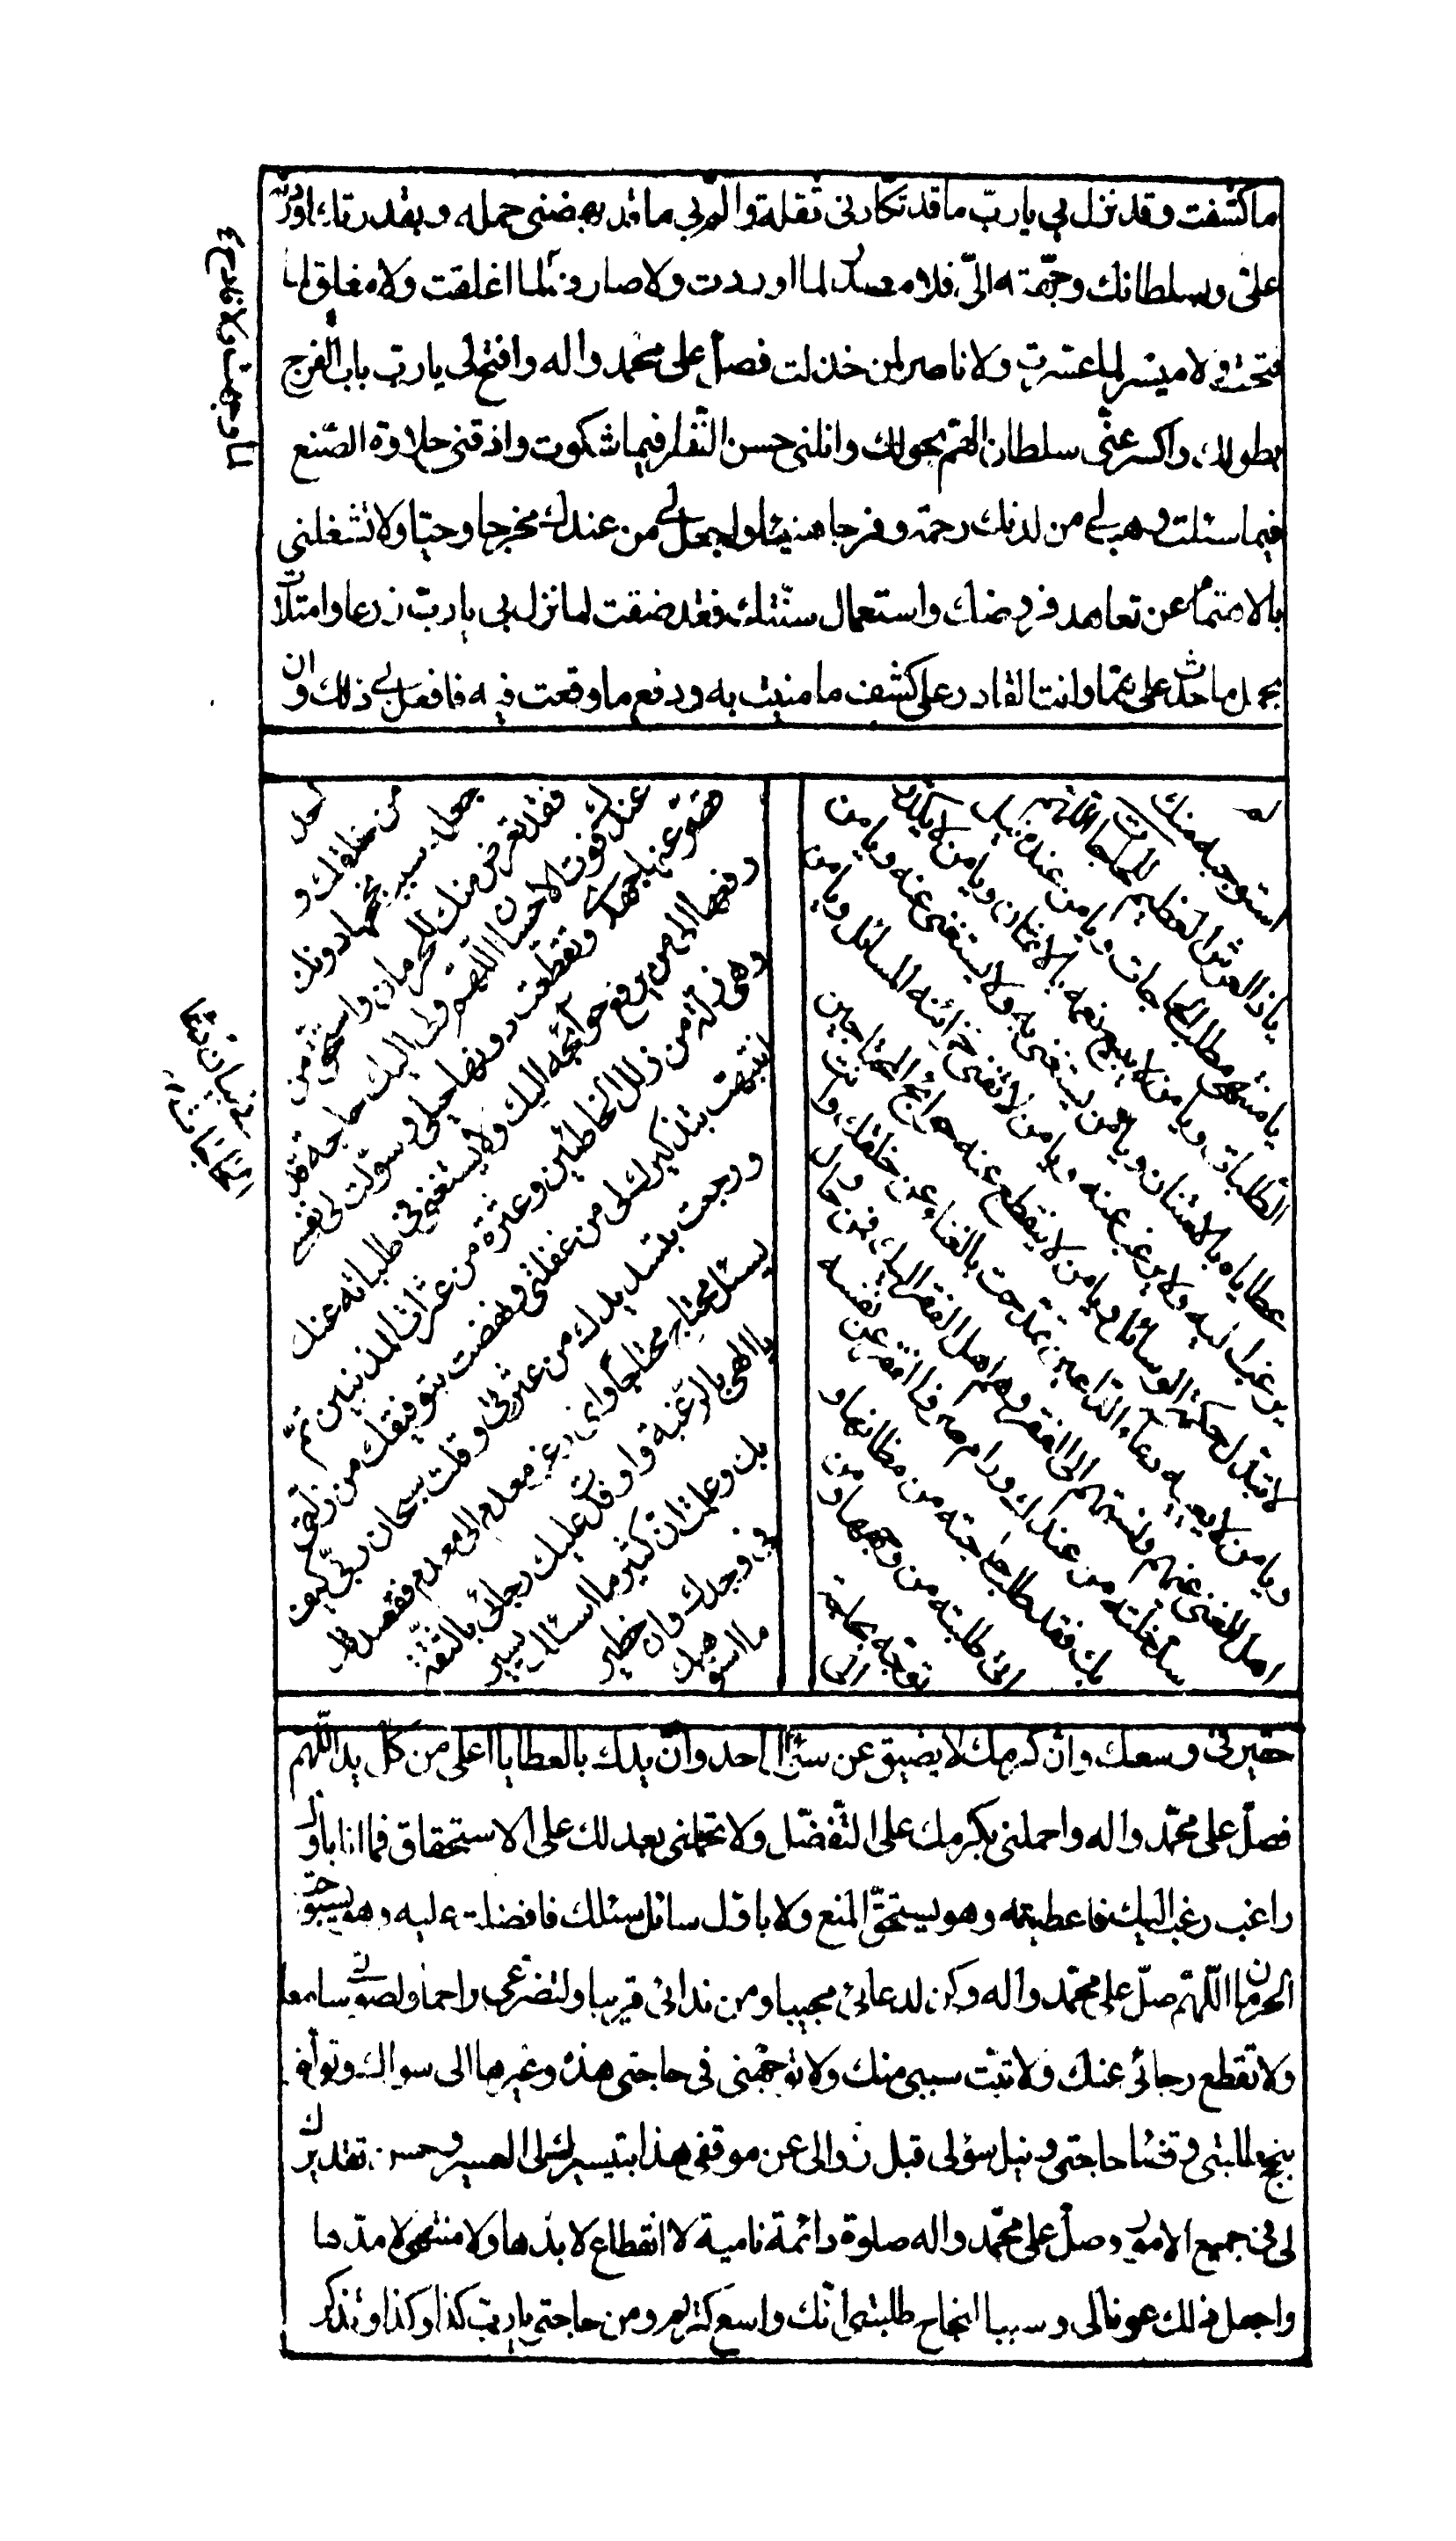 ما كشفت وقد نزل بي يا ربّ ما قد تكأدني ثقله والمّ بي ما قد بهضني حمله وبقدرتك اوردته
علىّ وبسلطانك وجّهته الىّ فلا مصدر لما اوردت ولا صارف لما اغلقت ولا مغلق لما
فتحت ولا ميسّر لما عسّرت ولا ناصر لمن خذلت فصلّ على محمد واله وافتح لى يا ربّ باب الفرج
بطولك واكسر عنّى سلطان الهمّ بحولك وانلنى حسن النّظر فيما شكوت واذقنى حلاوة الصّنع
فيما سئلت وهب لى من لدنك رحمة وفرجا هنيئا واجعل لى من عندك مخرجا وحيّا ولا تشغلنى
بالاهتمام عن تعاهد فروضك واستعمال سنّتك فقد ضقت لما نزل بى يا ربّ ذرعا وامتلأت
بحمل ما حدث على همّا وانت القادر على كشف ما منيت به ودفع ما وقعت فيه فافعل بى ذلك وان
لم
استوجبه منك
يا ذا العرش العظيم
اللّهم
يا منتهى مطلب الحاجات ويا من عنده نيل
الطّلبات ويا من لا يبيع نعمه بالاثمان ويا من لا يكدّر
عطاياه بالامتنان ويا من يستغنى به ولا يستغنى عنه ويا من
يرغب اليه ولا يرغب عنه ويا من لا تفنى خزائنه المسائل ويا من
لا تبدّل حكمته الوسائل ويا من لا ينقطع عنه حوائج المحتاجين
ويا من لا يعنيه دعاء الدّاعين تمدّحت بالغناء عن خلقك وانت
اهل الغنى عنهم ونسبتهم الى الفقر وهم اهل الفقر اليك فمن حاول
سدّ خلّته من عندك ورام صرف الفقر عن نفسه
بك فقد طلب حاجته من مظانها و
اتى طلبته من وجهها ومن
توجّه بحاجته
الى
احد
من خلقك و
جعل سبب نجحها دونك
فقد تعرّض منك للحرمان واستحقّ من
عندك فوت الاحسان اللّهمّ ولى اليك حاجة قد
قصّر عنها جهدى وتقطّعت دونها حيلى وسوّلت لى نفسى
رفعها الى من يرفع حوائجه اليك ولا يستغنى فى طلباته عنك
وهى زلّة من زلل الخاطئين وعثرة من عثرات المذنبين ثمّ
انتبهت بتذكيرك لى من غفلتى ونهضت بتوفيقك من زلّتى
ورجعت بتسديدك من عثرتى وقلت سبحان ربّى كيف
يسئل محتاج محتاجا وانى يرغب معدم الى معدم فقصدتك
يا الهى بالرّغبة واوفدت عليك رجائى بالثّقة
بك وعلمت انّ كثير ما اسئلك يسير
فى وجدك وان خطير
ما استوهبك
حقير فى وسعك وانّ كرمك لا يضيق عن سؤال احد وانّ يدك بالعطايا اعلى من كلّ يد اللّهم
فصلّ على محمّد واله واحملنى بكرمك على التّفضّل ولا تحملنى بعدلك على الاستحقاق فما انا باوّل
راغب رغب اليك فاعطيته وهو يستحقّ المنع ولا باوّل سائل سئلك فافضلت عليه وهو يستوجب
الحرمان اللّهمّ صلّ على محمّد واله وكن لدعائى مجيبا ومن ندائى قريبا ولتضرّعى راحما ولصوتى سامعا
ولا تقطع رجائى عنك ولا تبتّ سببى منك ولا توجّهنى فى حاجتى هذه وغيرها الى سواك وتولّنى
بنجح طلبتى وقضاء حاجتى ونيل سؤلى قبل زوالى عن موقفى هذا بتيسيرك لى العسير وحسن تقديرك
لى فى جميع الامور وصلّ على محمّد واله صلوة دائمة نامية لا انقطاع لابدها ولا منتهى لامدها
واجعل ذلك عونا لى وسببا لنجاح طلبتى انّك واسع كريم ومن حاجتى يا ربّ كذا وكذا وتذكر